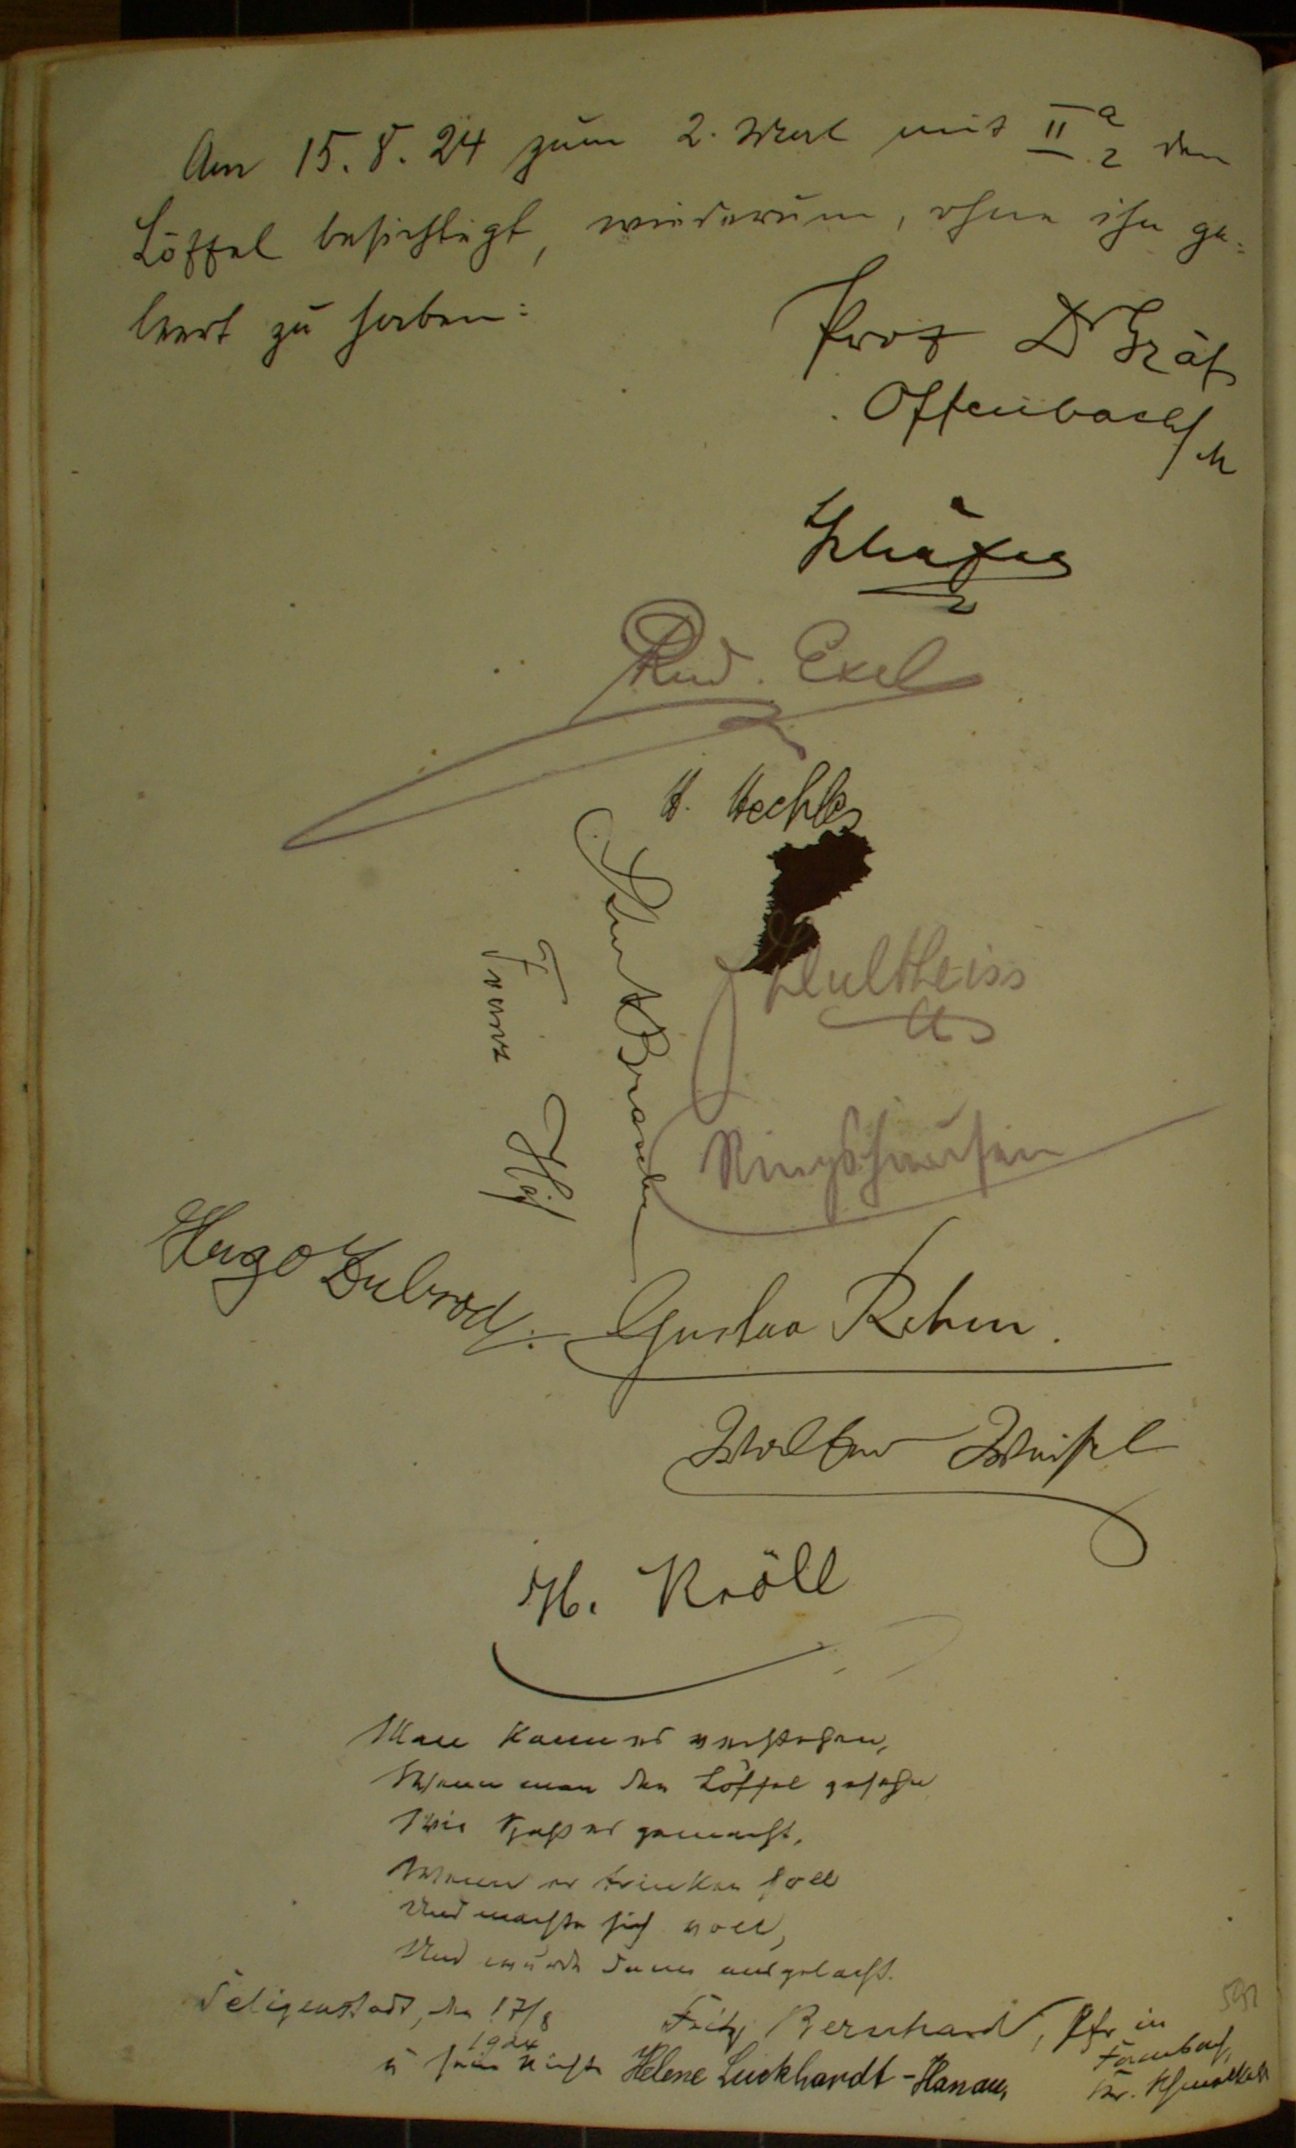 Am 15. 8. 24 zum 2. Mal mit II a 2 den
Löffel besichtigt, wiederum, ohne ihn ge-
leert zu haben:
Prof Dr Gräf
Offenbach/M
Schäfer
Rud. Exel
H. Hechler
Schultheiss
Kurt
Franz
Ringshausen
Hugo
Gustav Rehm.
Walter Weisel
H. Kröll
Man kann es verstehen,
Wenn man den Löffel gesehn
Wie Spaß es gemacht,
Wenn er trinken soll
Und machte sich voll,
Und wurde dann ausgelacht.
Seligenstadt, den 17/8
1924
Fritz Bernhard, Pfr in
u seine Nichte Helene Luckhardt - Hanau,